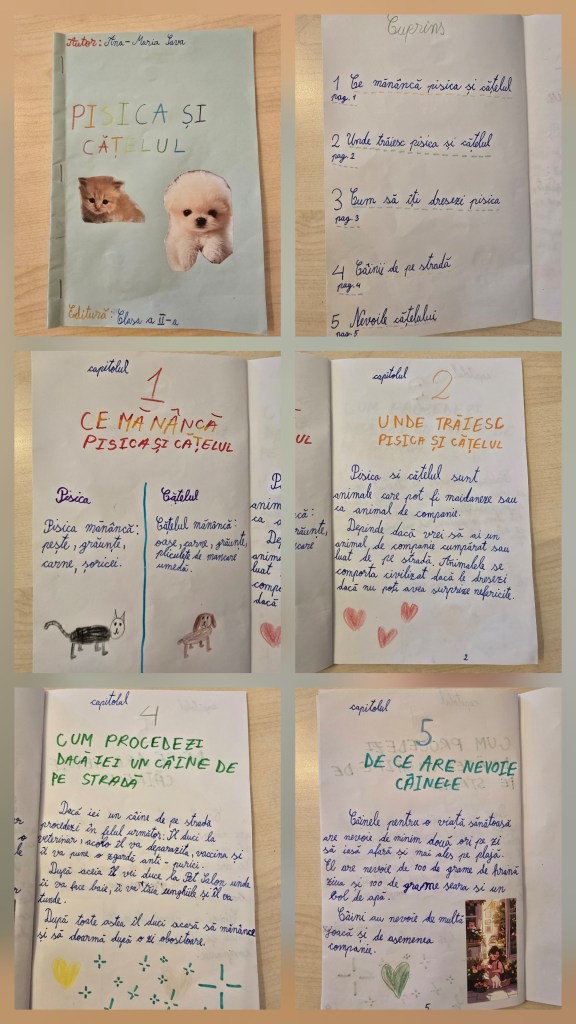 Autor: Ana-Maria Sava
PISICA ȘI
CĂȚELUL
Editură: Clasa a II-a
Cuprins
1 Ce mănâncă pisica și cățelul
pag. 1
2 Unde trăiesc pisica și cățelul
pag. 2
3 Cum să îți dresezi pisica
pag. 3
4 Câinii de pe stradă
pag. 4
5 Nevoile cățelului
pag. 5
capitolul
1
CE MĂNÂNCĂ
PISICA ȘI CĂȚELUL
Pisica
Pisica mănâncă:
pește, grăunțe,
carne, soricei.
Cățelul
Cățelul mănâncă:
oase, carne, grăunțe,
pliculețe de mancare
umedă.
capitolul
2
UNDE TRĂIESC
PISICA ȘI CĂȚELUL
Pisica si cățelul sunt
animale care pot fi maidaneze sau
ca animal de companie.
Depinde dacă vrei să ai un
animal de companie cumpărat sau
luat de pe stradă. Animalele se
comporta civilizat dacă le dresezi
dacă nu poți avea surprize nefericite.
2
capitolul
4
CUM PROCEDEZI
DACĂ IEI UN CÂINE DE
PE STRADĂ
Dacă iei un câine de pe strada
procedezi în felul următor: Îl duci la
veterinar, acolo îl va deparazita, vaccina și
îi va pune o zgardă anti-purici.
După aceia îl vei duce la Pet Salon unde
îi va face baie, îi va tăia unghiile și îl va
tunde.
După toate astea îl duci acasă să mănânce
și să doarmă după o zi obositoare.
capitolul
5
DE CE ARE NEVOIE
CÂINELE
Câinele pentru o viată sănătoasă
are nevoie de minim două ori pe zi
să iasă afară și mai ales pe plajă.
El are nevoie de 100 de grame de hrană
ziua si 100 de grame seara si un
bol de apă.
Câini au nevoie de multă
joacă și de asemenea
companie.
5